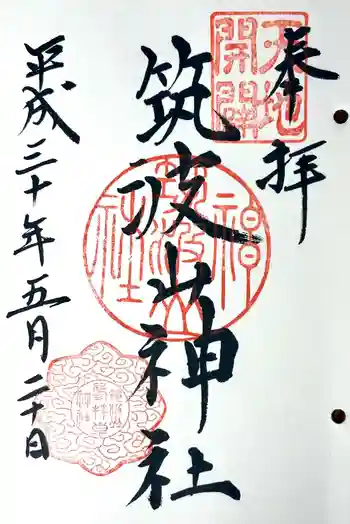 奉拝
天地開闢
筑波山神社
筑波山神社
平成三十年五月二十日